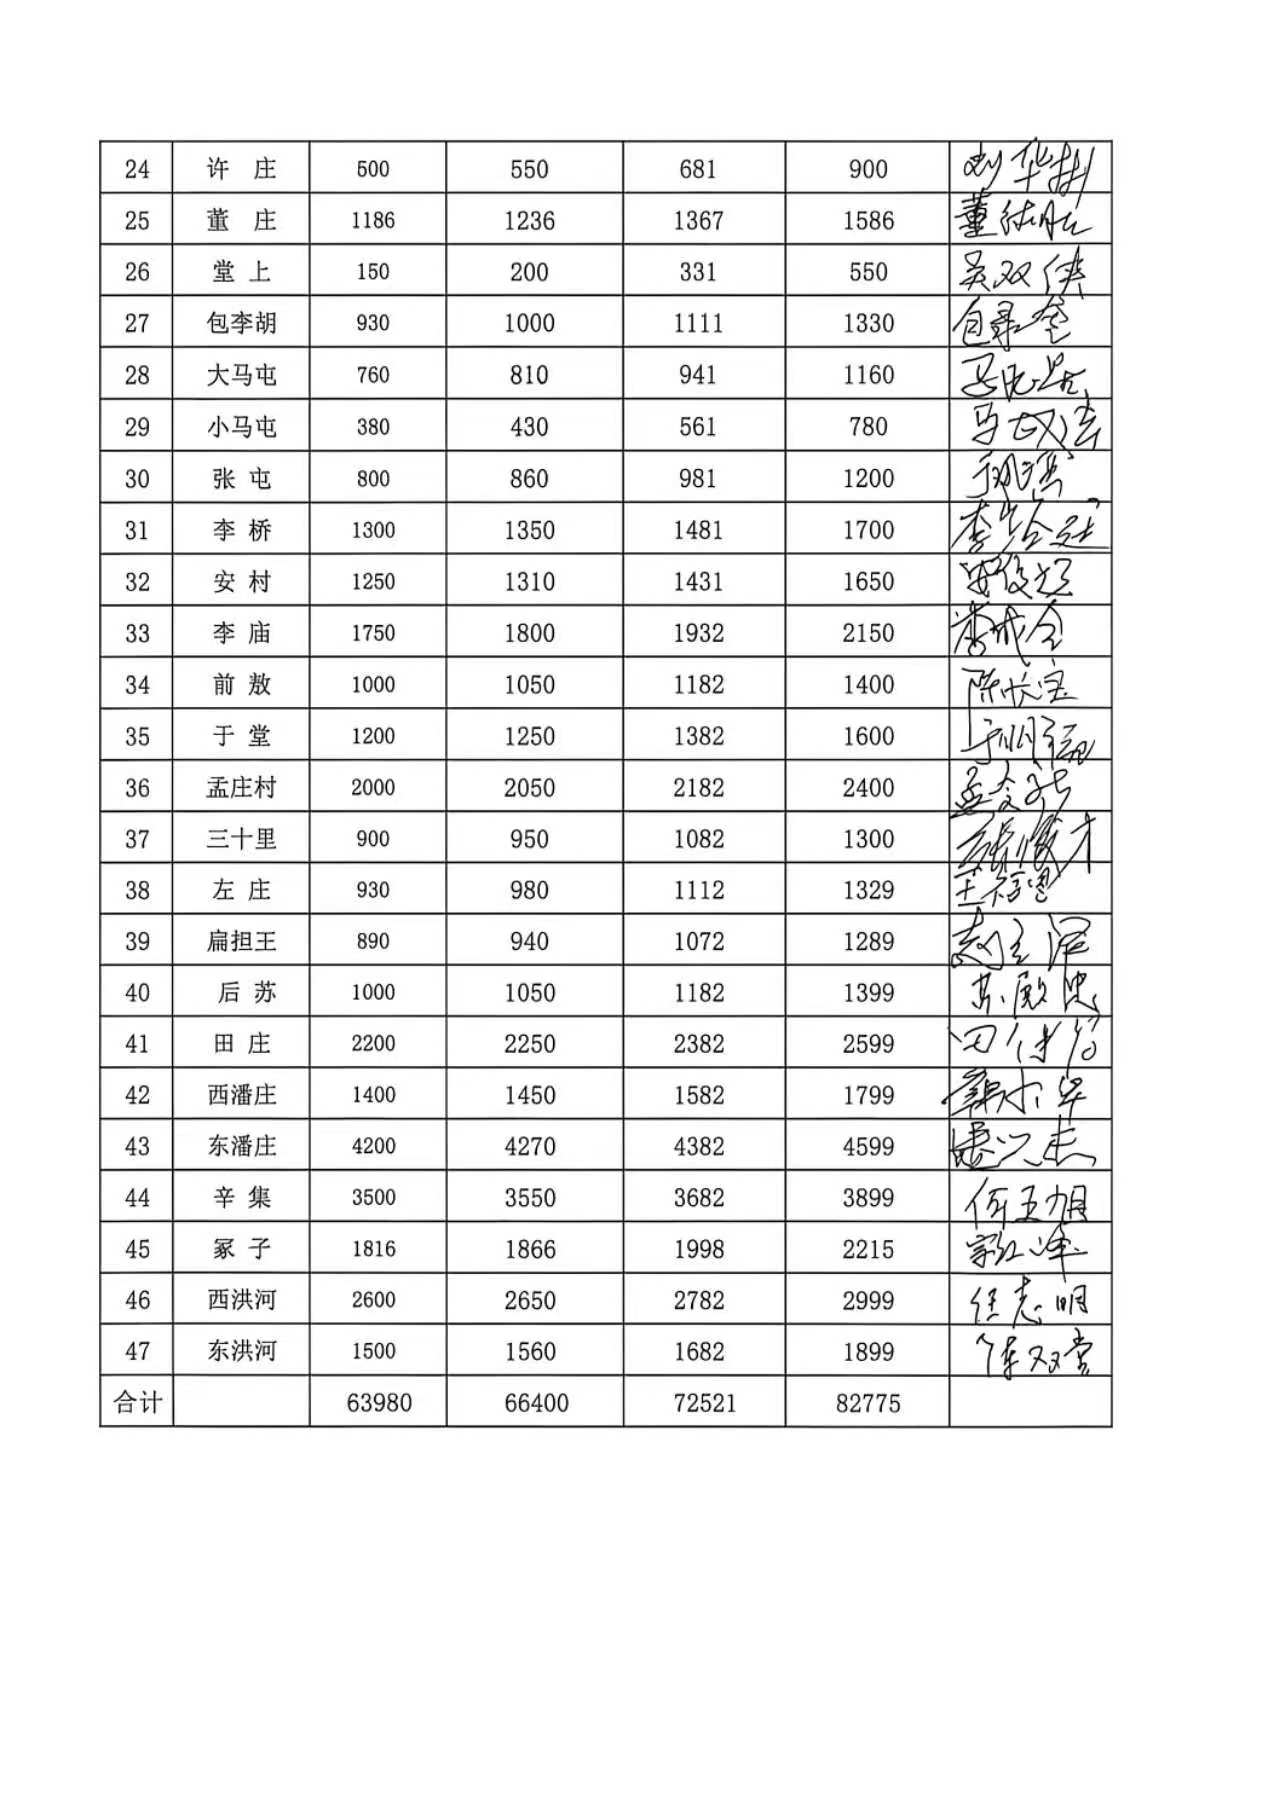 24 许 庄 500 550 681 900 刘华彬
25 董 庄 1186 1236 1367 1586 董
26 堂 上 150 200 331 550 吴双侠
27 包李胡 930 1000 1111 1330
28 大马屯 760 810 941 1160
29 小马屯 380 430 561 780 马
30 张 屯 800 860 981 1200
31 李 桥 1300 1350 1481 1700 李
32 安 村 1250 1310 1431 1650 安俊
33 李 庙 1750 1800 1932 2150 李成全
34 前 敖 1000 1050 1182 1400 陈长宝
35 于 堂 1200 1250 1382 1600 于明福
36 孟庄村 2000 2050 2182 2400 孟令
37 三十里 900 950 1082 1300 张俊才
38 左 庄 930 980 1112 1329 王
39 扁担王 890 940 1072 1289
40 后 苏 1000 1050 1182 1399 苏殿忠
41 田 庄 2200 2250 2382 2599 田
42 西潘庄 1400 1450 1582 1799
43 东潘庄 4200 4270 4382 4599
44 辛 集 3500 3550 3682 3899 何玉旭
45 冢 子 1816 1866 1998 2215
46 西洪河 2600 2650 2782 2999 任志明
47 东洪河 1500 1560 1682 1899 陈双喜
合计 63980 66400 72521 82775